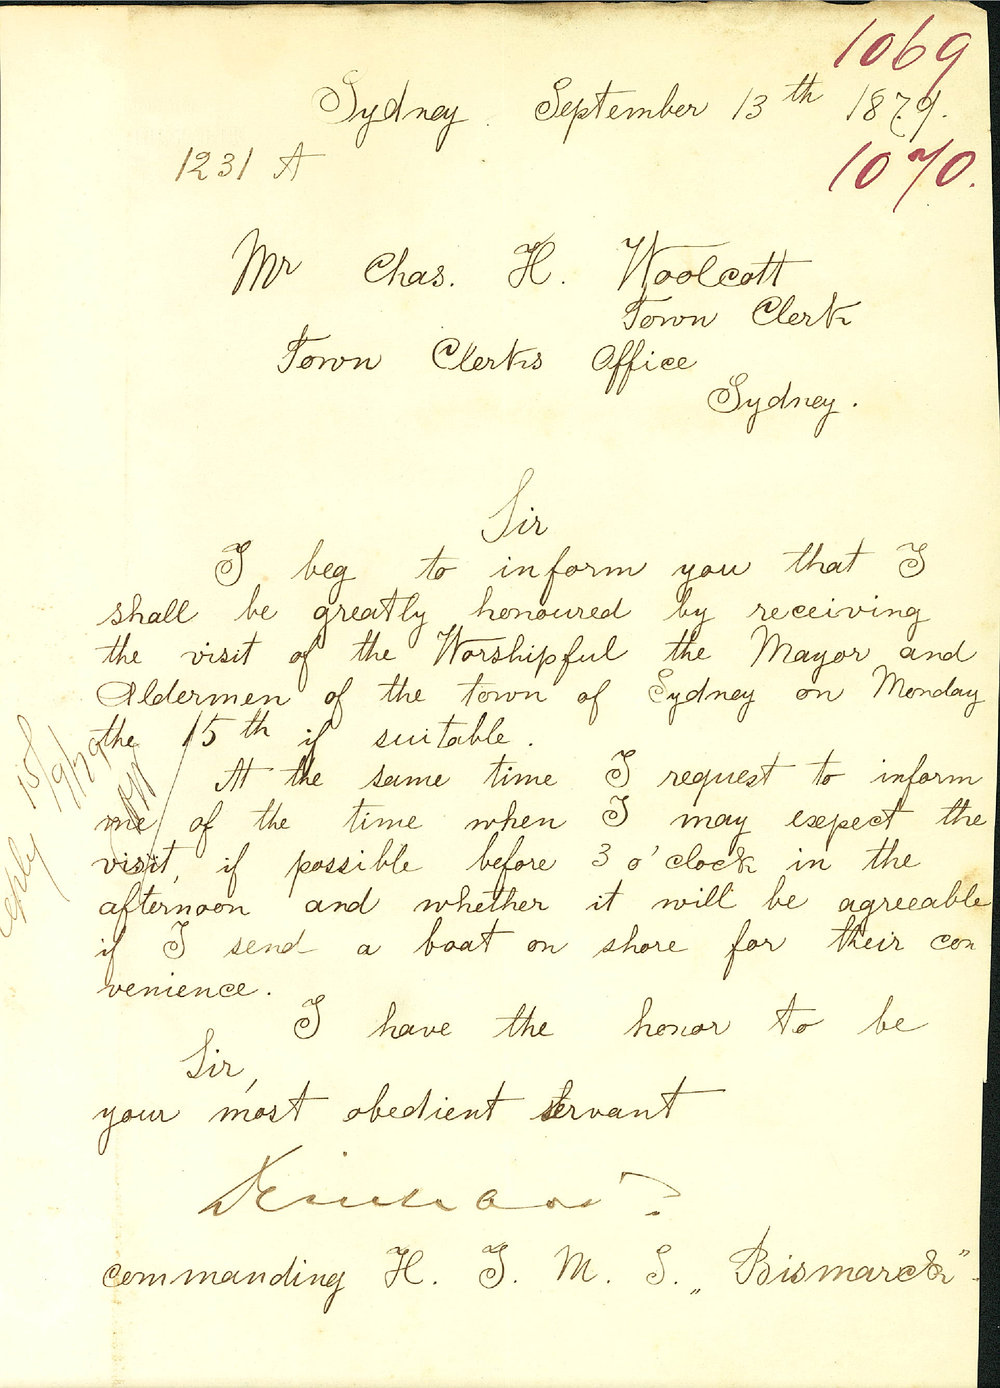 1069
Sydney. September 13th 1879.
1070.
1231 A
Mr Chas. H. Woolcott
Town Clerk
Town Clerks Office
Sydney.
Sir
I beg to inform you that I
shall be greatly honoured by receiving
the visit of the Worshipful the Mayor and
Aldermen of the town of Sydney on Monday
the 15th if suitable.
At the same time I request to inform
me of the time when I may expect the
visit, if possible before 3 o'clock in the
afternoon and whether it will be agreeable
if I send a boat on shore for their con
venience.
I have the honor to be
Sir,
your most obedient servant
commanding H. I. M. S. „Bismarck"
reply 15/9/79